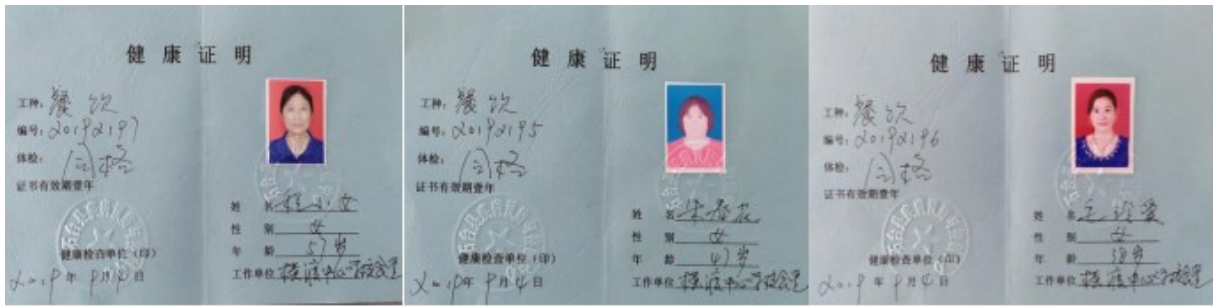 健康证明
工种：餐饮
编号：20192197
体检：合格
证书有效期壹年
姓 名 程小女
性 别 女
年 龄 57岁
工作单位 横渡中心学校食堂
健康检查单位（印）
2019年9月4日
健康证明
工种：餐饮
编号：20192195
体检：合格
证书有效期壹年
姓 名 朱
性 别 女
年 龄 47岁
工作单位 横渡中心学校食堂
健康检查单位（印）
2019年9月4日
健康证明
工种：餐饮
编号：20192196
体检：合格
证书有效期壹年
姓 名
性 别 女
年 龄 38岁
工作单位 横渡中心学校食堂
健康检查单位（印）
2019年9月4日